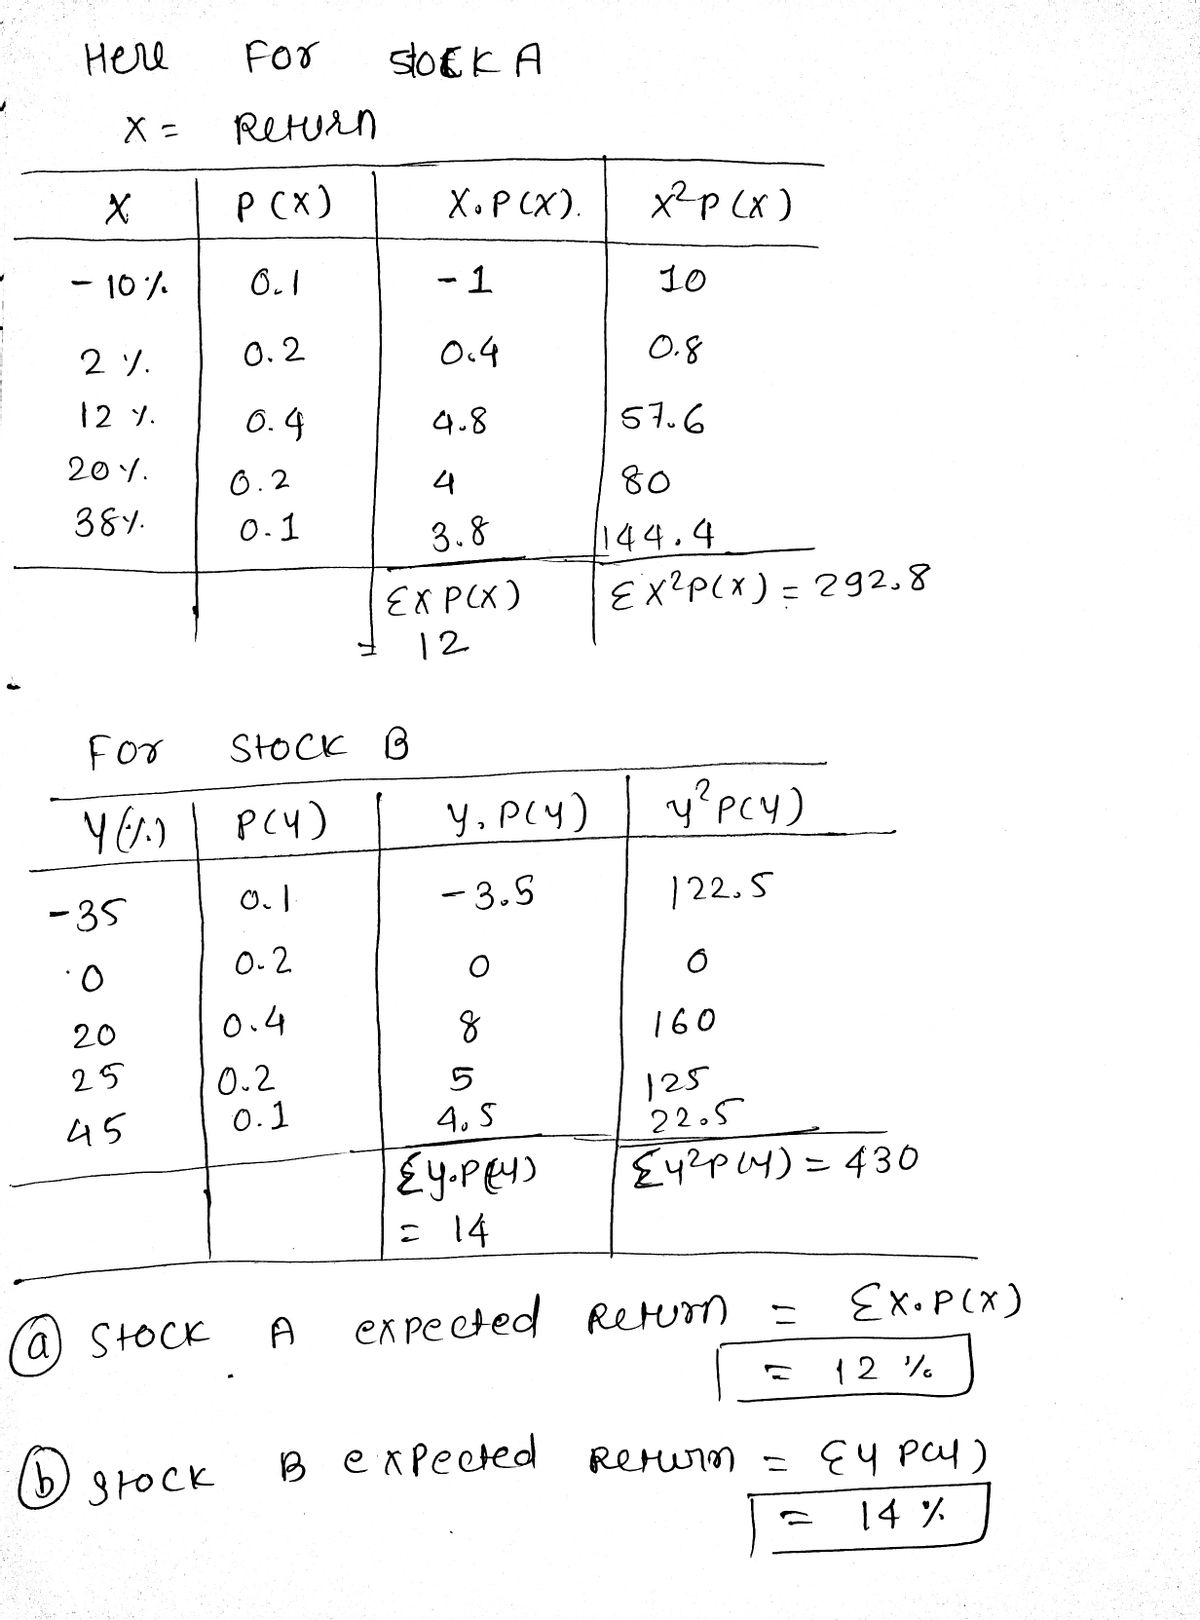 Here For Stock A
X = Return
X P(X) X.P(X). X²P(X)
-10% 0.1 -1 10
2% 0.2 0.4 0.8
12% 0.4 4.8 57.6
20% 0.2 4 80
38% 0.1 3.8 144.4
ΣXP(X) ΣX²P(X) = 292.8
= 12
For Stock B
Y(%) P(Y) Y.P(Y) Y²P(Y)
-35 0.1 -3.5 122.5
0 0.2 0 0
20 0.4 8 160
25 0.2 5 125
45 0.1 4.5 22.5
ΣY.P(Y) ΣY²P(Y) = 430
= 14
(a) Stock A expected Return = ΣX.P(X)
= 12%
(b) Stock B expected Return = ΣY P(Y)
= 14%